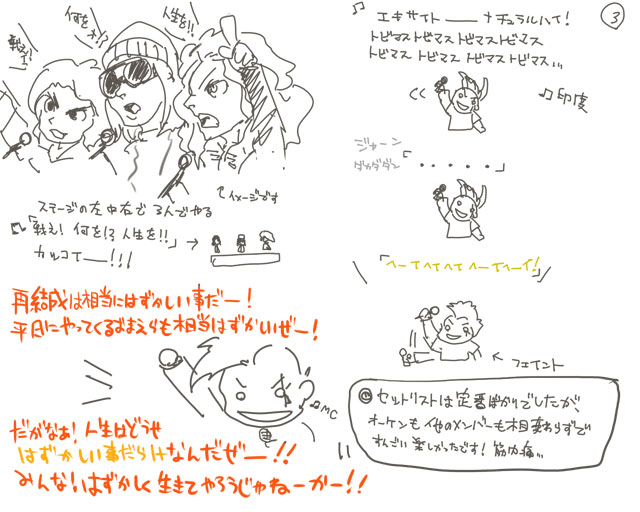 戦え!
何を!?
人生を!!
↑イメージです
ステージの左中右で 3人でやる
「戦え! 何を!? 人生を!!」→
カッコてー!!!
再結成は相当にはずかしい事だー!
平日にやってくるおまえらも相当はずかいぜー!
♫MC
だがなあ! 人生はどうせ
はずかしい事だらけなんだぜー!!
みんな!はずかしく生きてやろうじゃねーかー!!
3
♫ エキサイトーナチュラルハイ!
トビマストビマストビマストビマス
トビマス トビマス トビマストビマス...
♫印度
ジャーン
ダカダダン
「・・・・・」
「へーてへてへて へーてへーイ!」
← フェイント
◎セットリストは定番ばかりでしたが、
オーケンも他のメンバーも相変わらずで
すんごい楽しかったです! 筋肉痛...